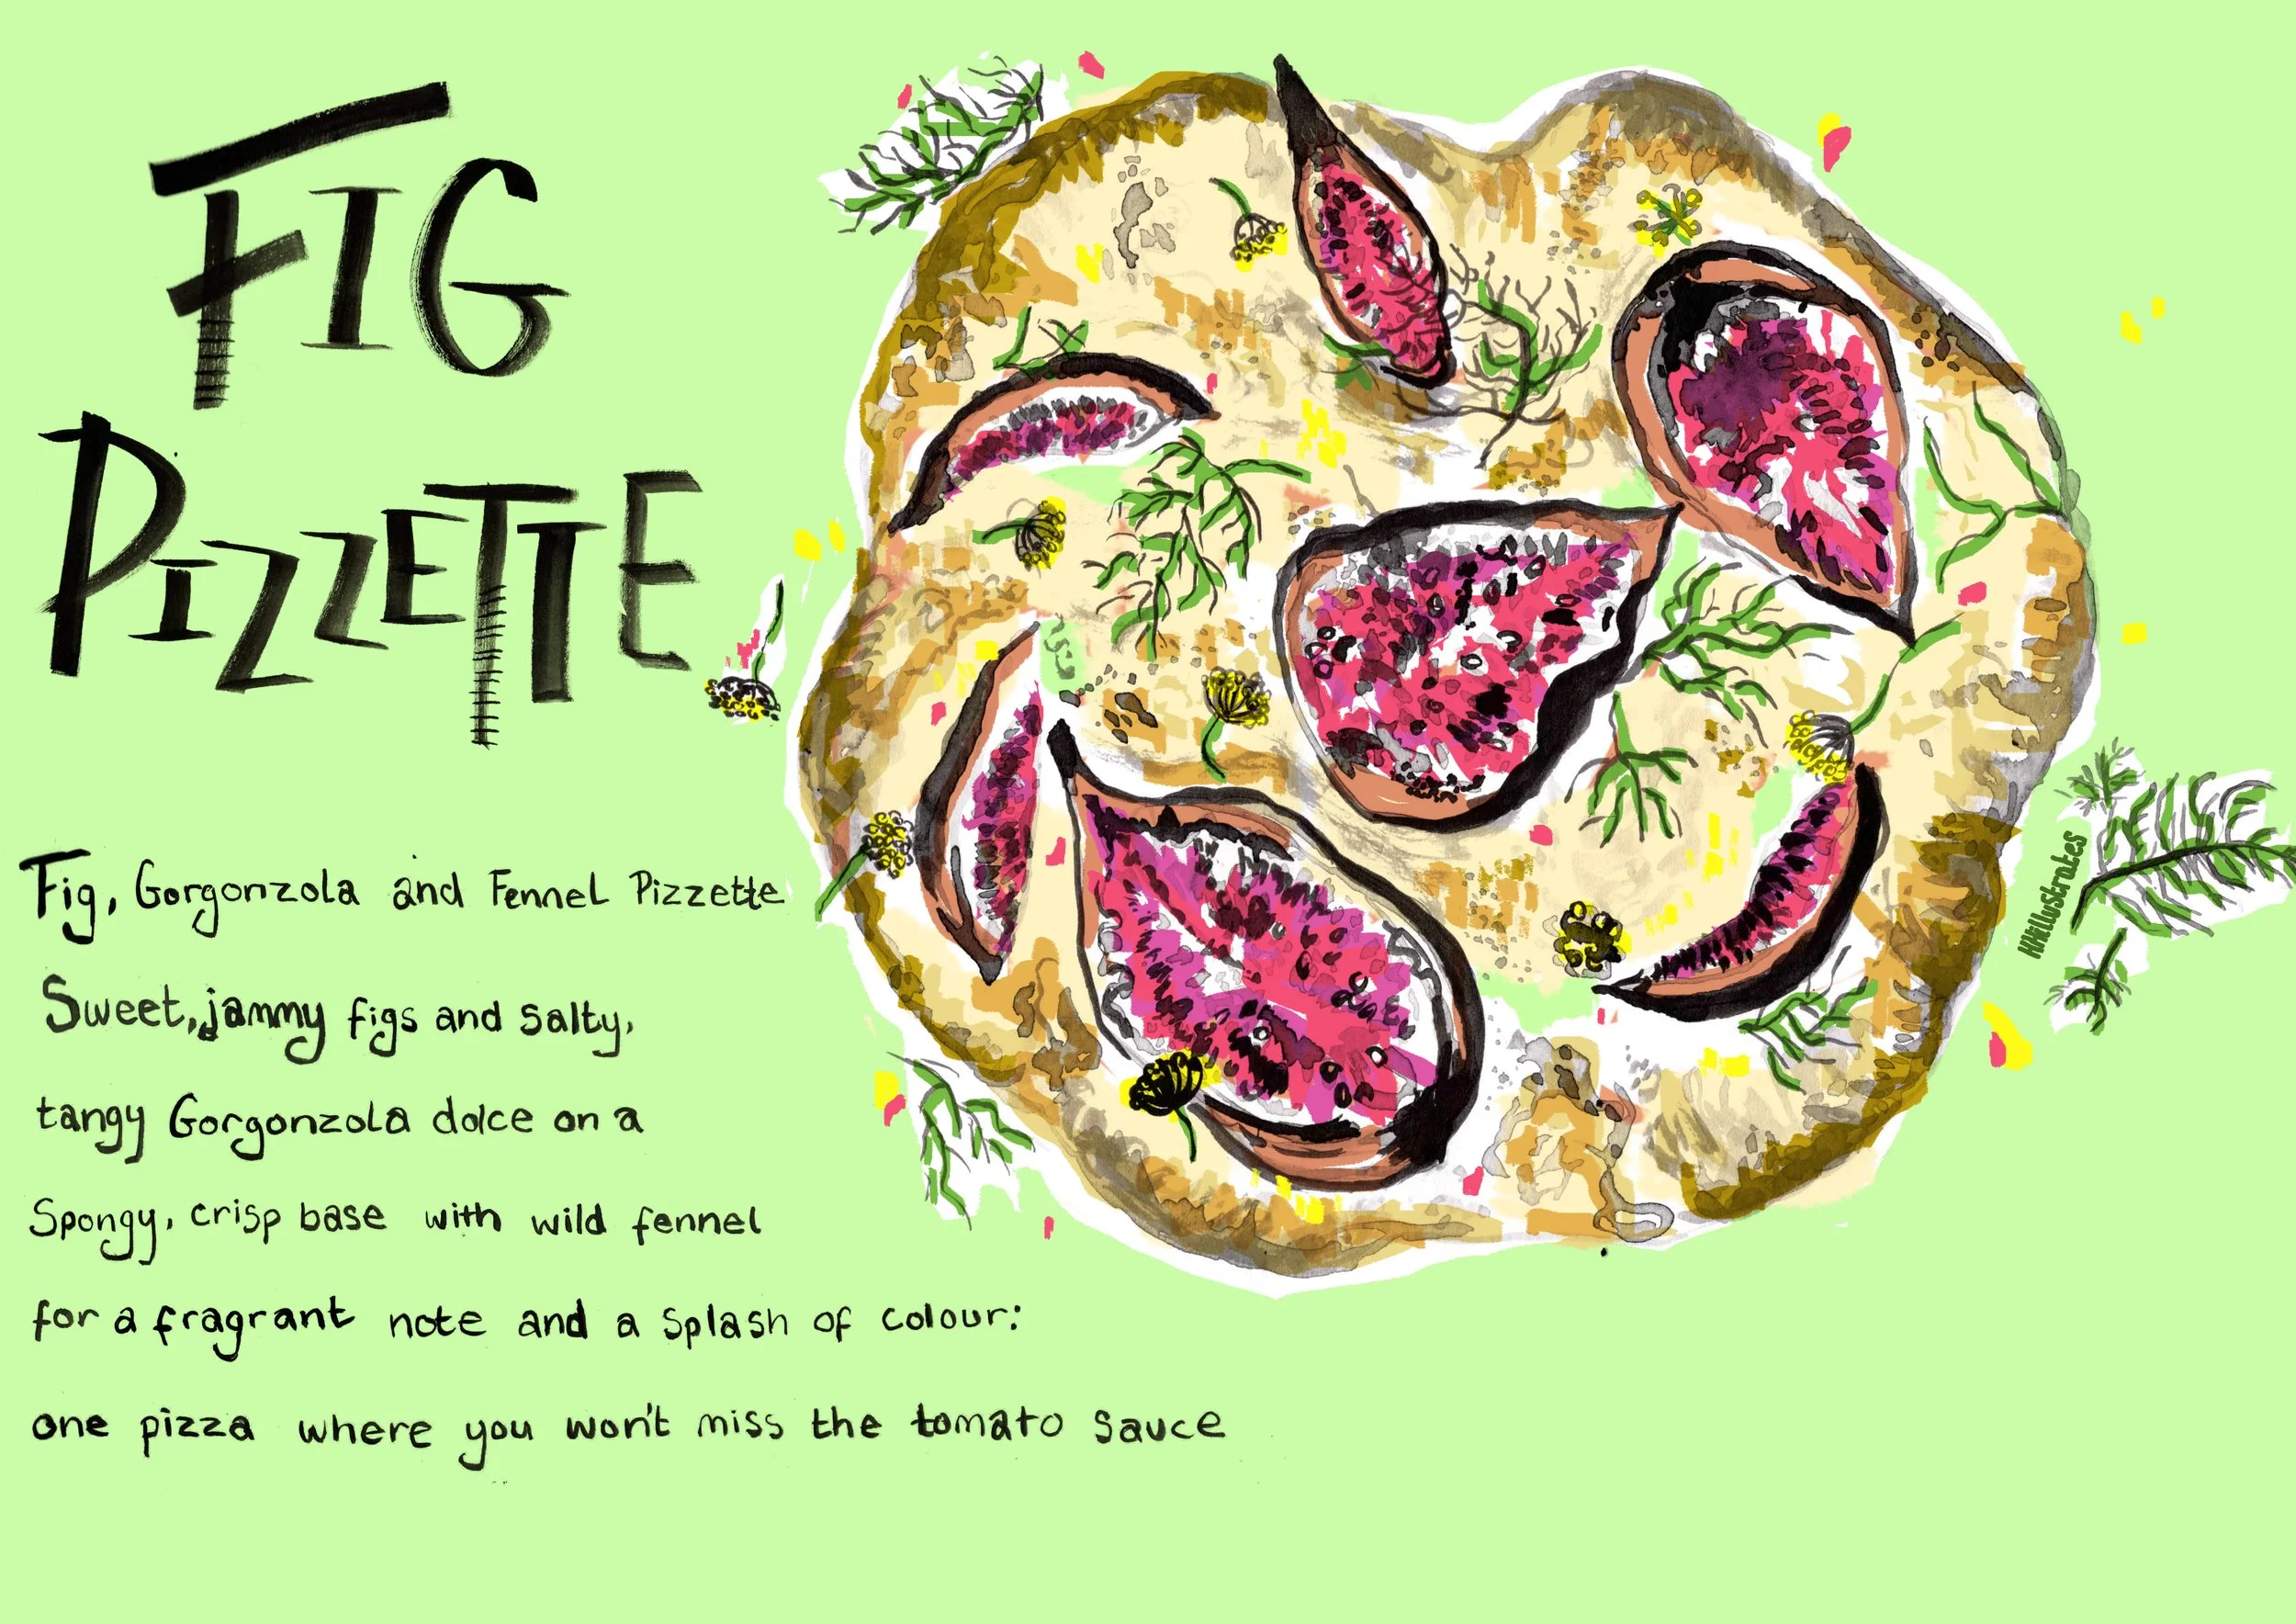 FIG
PIZZETTE
Fig, Gorgonzola and Fennel Pizzette
Sweet, jammy figs and salty,
tangy Gorgonzola dolce on a
Spongy, crisp base with wild fennel
for a fragrant note and a splash of colour:
one pizza where you won't miss the tomato sauce
HHillustrates